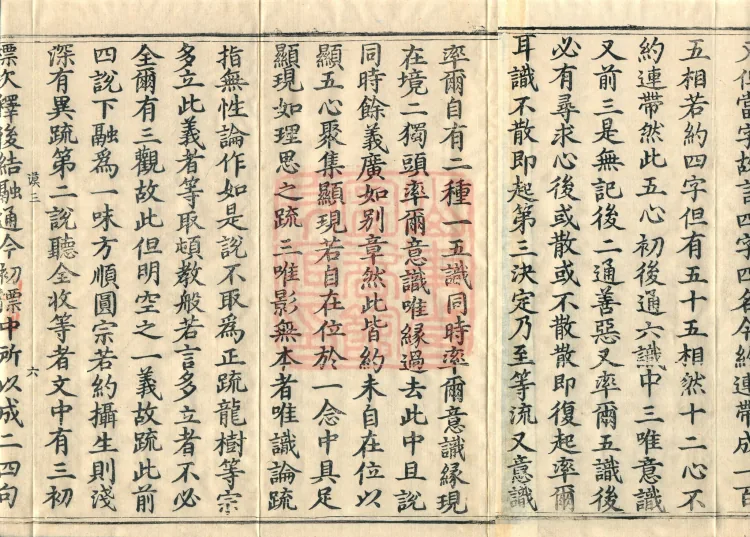 當字故言四字四名今約連帶成一百
五相若約四字但有五十五相然十二心不
約連帶然此五心初後通六識中三唯意識
又前三是無記後二通善惡又率爾五識後
必有尋求心後或散或不散散即復起率爾
耳識不散即起第三決定乃至等流又意識
率爾自有二種一五識同時率爾意識緣現
在境二獨頭率爾意識唯緣過去此中且說
同時餘義廣如別章然此皆約未自在位以
顯五心聚集顯現若自在位於一念中具足
顯現如理思之疏二唯影無本者唯識論疏
指無性論作如是說不取爲正疏龍樹等宗
多立此義者等取頓教般若言多立者不必
全爾有三觀故此但明空之一義故疏此前
四說下融爲一味方順圓宗若約攝生則淺
深有異疏第二說聽全收等者文中有三初
漠三 六
標次釋後結融通今初標中所以成二四句